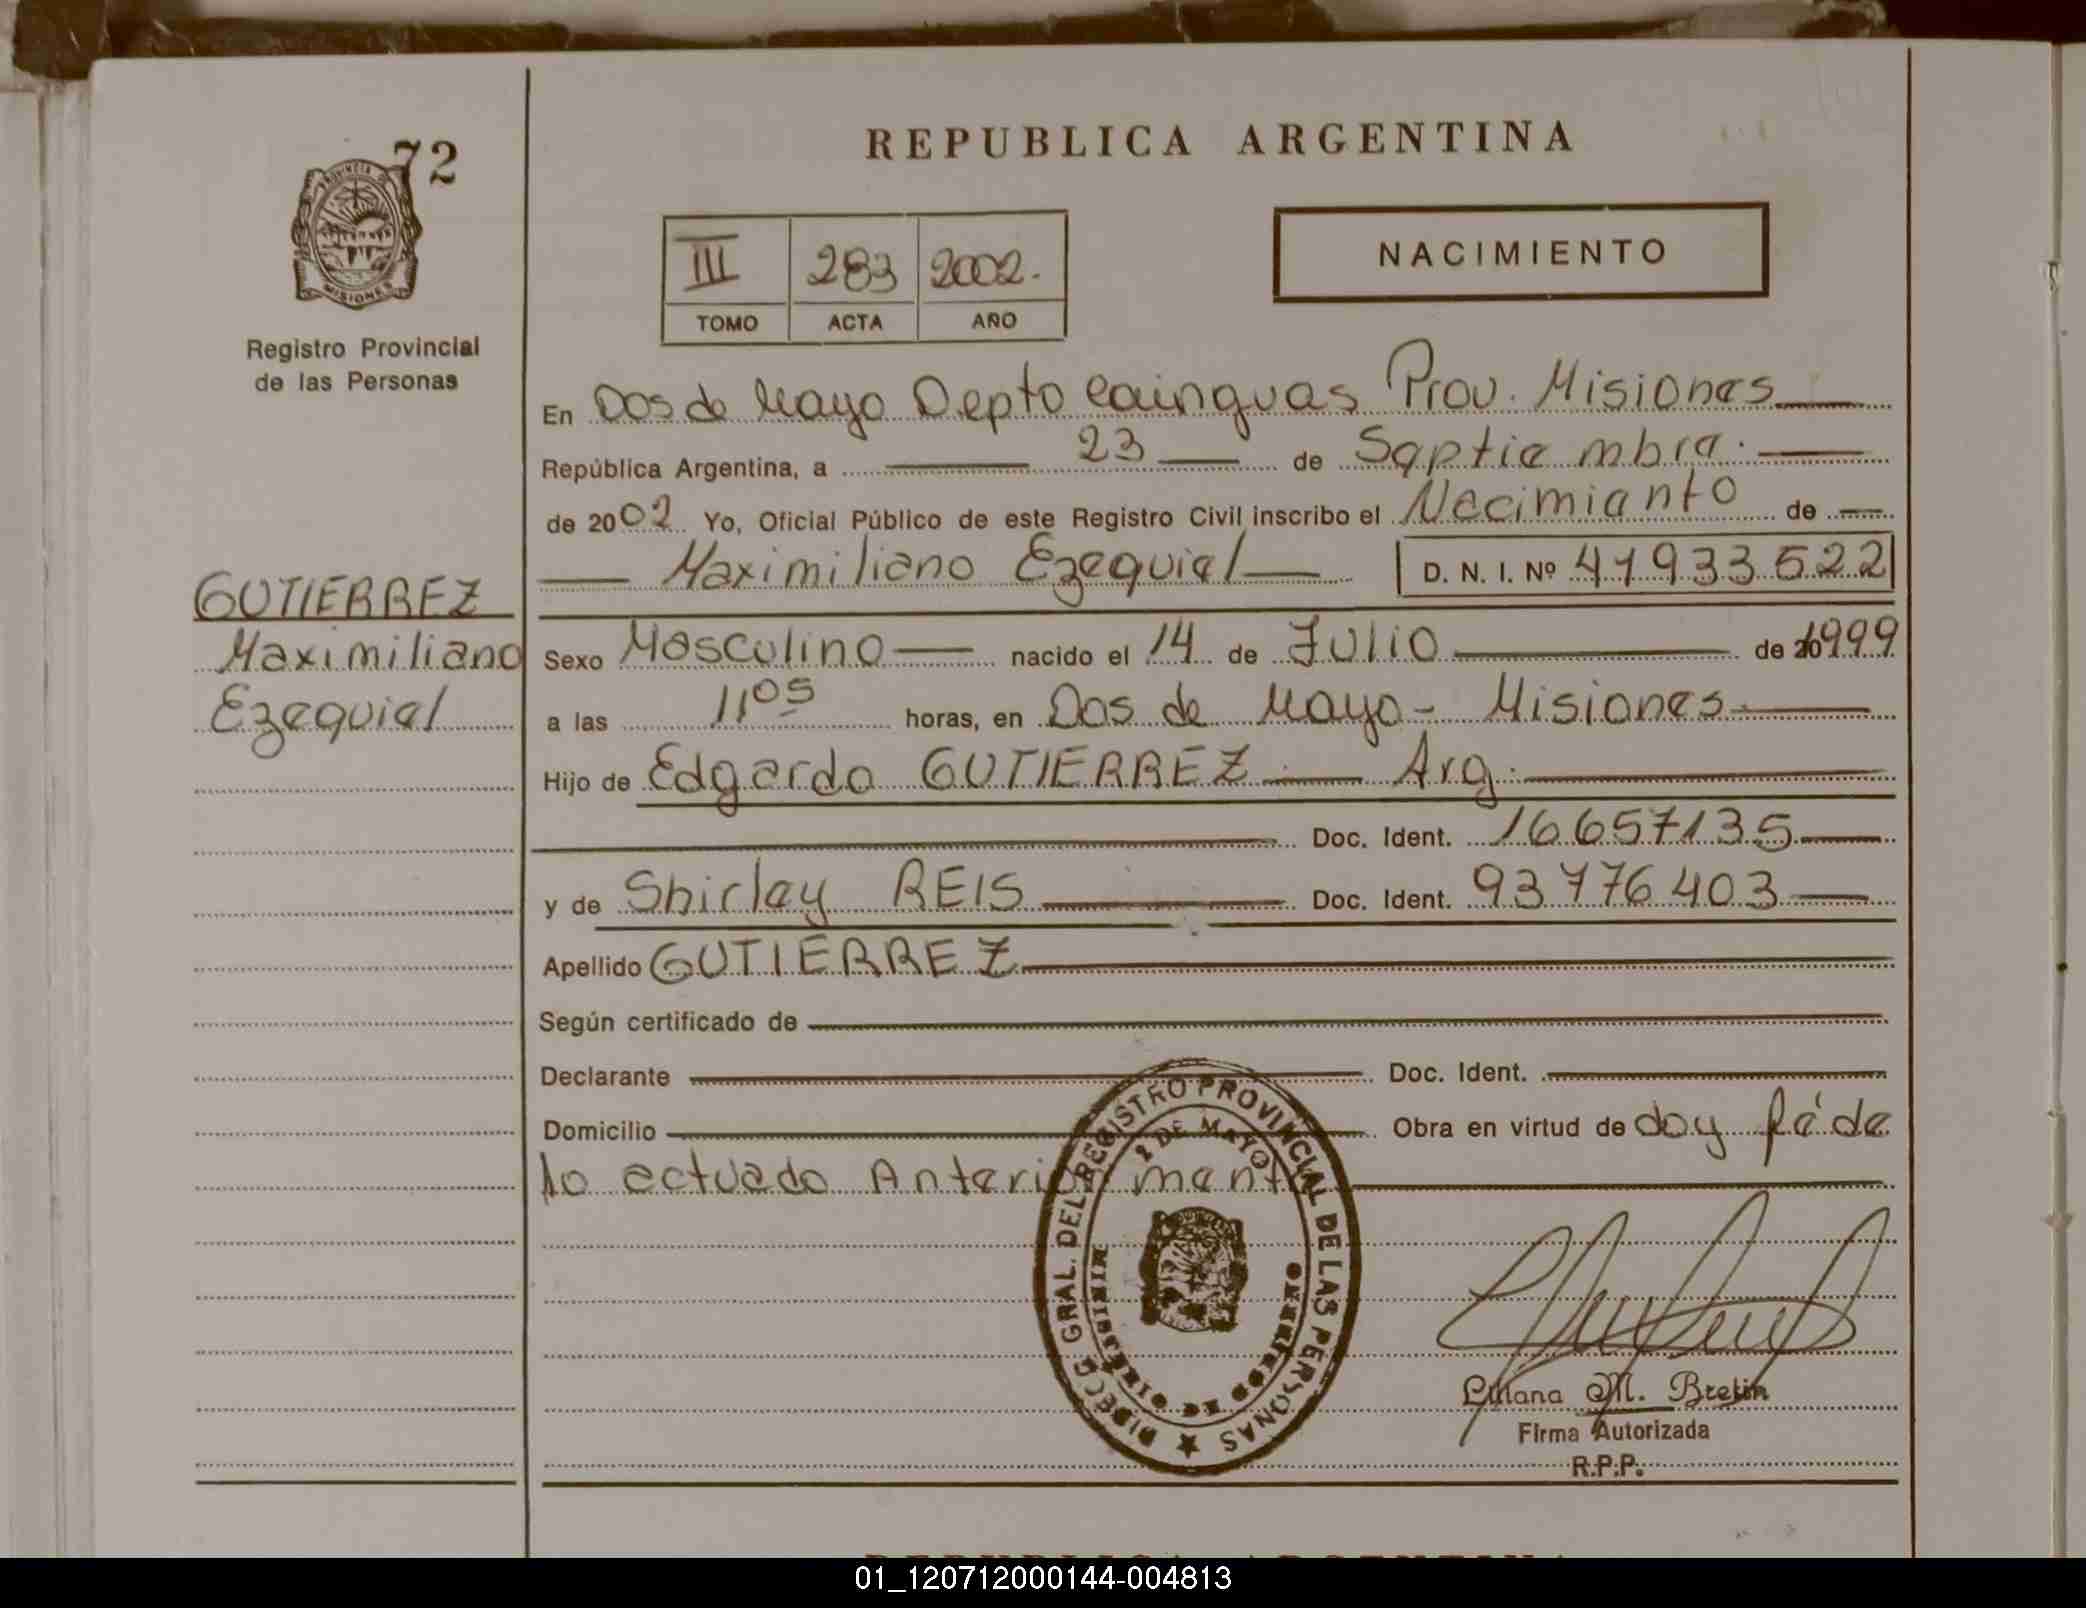 72
PROVINCIA DE
MISIONES
Registro Provincial
de las Personas
GUTIERREZ
Maximiliano
Ezequiel
REPUBLICA ARGENTINA
III 283 2002.
TOMO ACTA AÑO
NACIMIENTO
En Dos de Mayo Depto Cainguas Prov. Misiones
República Argentina, a 23 de Septiembre.
de 2002 Yo, Oficial Público de este Registro Civil inscribo el Nacimiento de
Maximiliano Ezequiel D. N. I. Nº 41933522
Sexo Masculino nacido el 14 de Julio de 1999
a las 1105 horas, en Dos de Mayo - Misiones
Hijo de Edgardo GUTIERREZ Arg.
Doc. Ident. 16657135
y de Shirley REIS Doc. Ident. 93776403
Apellido GUTIERREZ
Según certificado de
Declarante Doc. Ident.
Domicilio Obra en virtud de doy fé de
lo actuado Anteriormente
GRAL. DEL REGISTRO PROVINCIAL DE LAS PERSONAS
2 DE MAYO
MINISTERIO DE GOBIERNO
Liliana M. Bretin
Firma Autorizada
R.P.P.
REPUBLICA ARGENTINA
01_120712000144-004813